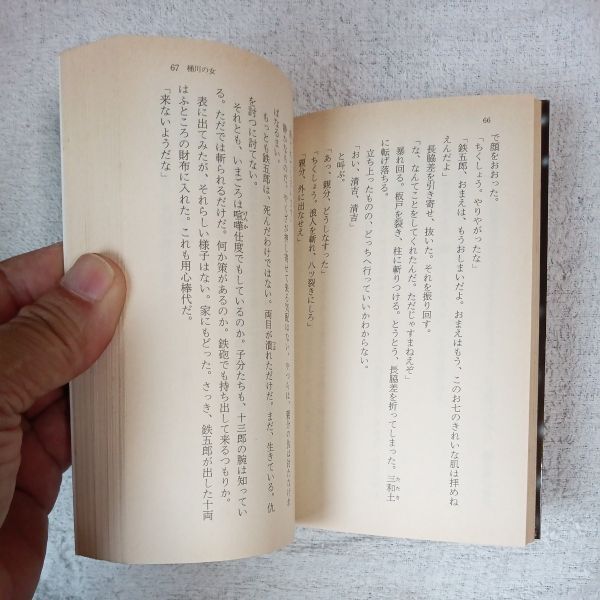 66
で顔をおおった。
「ちくしょう。やりやがったな」
「鉄五郎、おまえは、もうおしまいだよ。おまえはもう、このお七のきれいな肌は拝めね
えんだよ」
長脇差を引き寄せ、抜いた。それを振り回す。
「な、なんてことをしてくれたんだ。ただじゃすまねえぞ」
暴れ回る。板戸を裂き、柱に斬りつける。とうとう、長脇差を折ってしまった。三和土
に転げ落ちる。
立ち上ったものの、どっちへ行っていいかわからない。
「おい、清吉、清吉」
と呼ぶ。
「あっ、親分、どうしなすった」
「ちくしょう。浪人を斬れ、八ツ裂きにしろ」
「親分、外に出なせえ」
67 桶川の女
ばなるまい。
もっとも鉄五郎は、死んだわけではない。両目が潰れただけだ。まだ、生きている。仇
を討つに討てない。
それとも、いまごろは喧嘩仕度でもしているのか。子分たちも、十三郎の腕は知ってい
る。ただでは斬られるだけだ。何か策があるのか。鉄砲でも持ち出して来るつもりか。
表に出てみたが、それらしい様子はない。家にもどった。さっき、鉄五郎が出した十両
はふところの財布に入れた。これも用心棒代だ。
「来ないようだな」